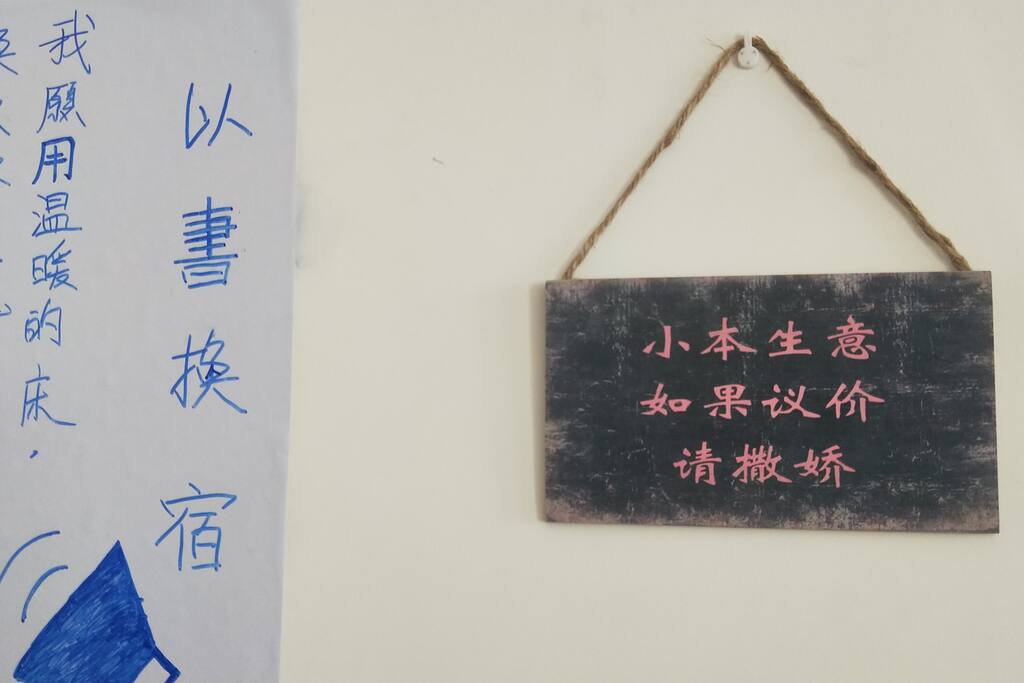 以書換宿
我願用温暖的床,
小本生意
如果议价
请撒娇